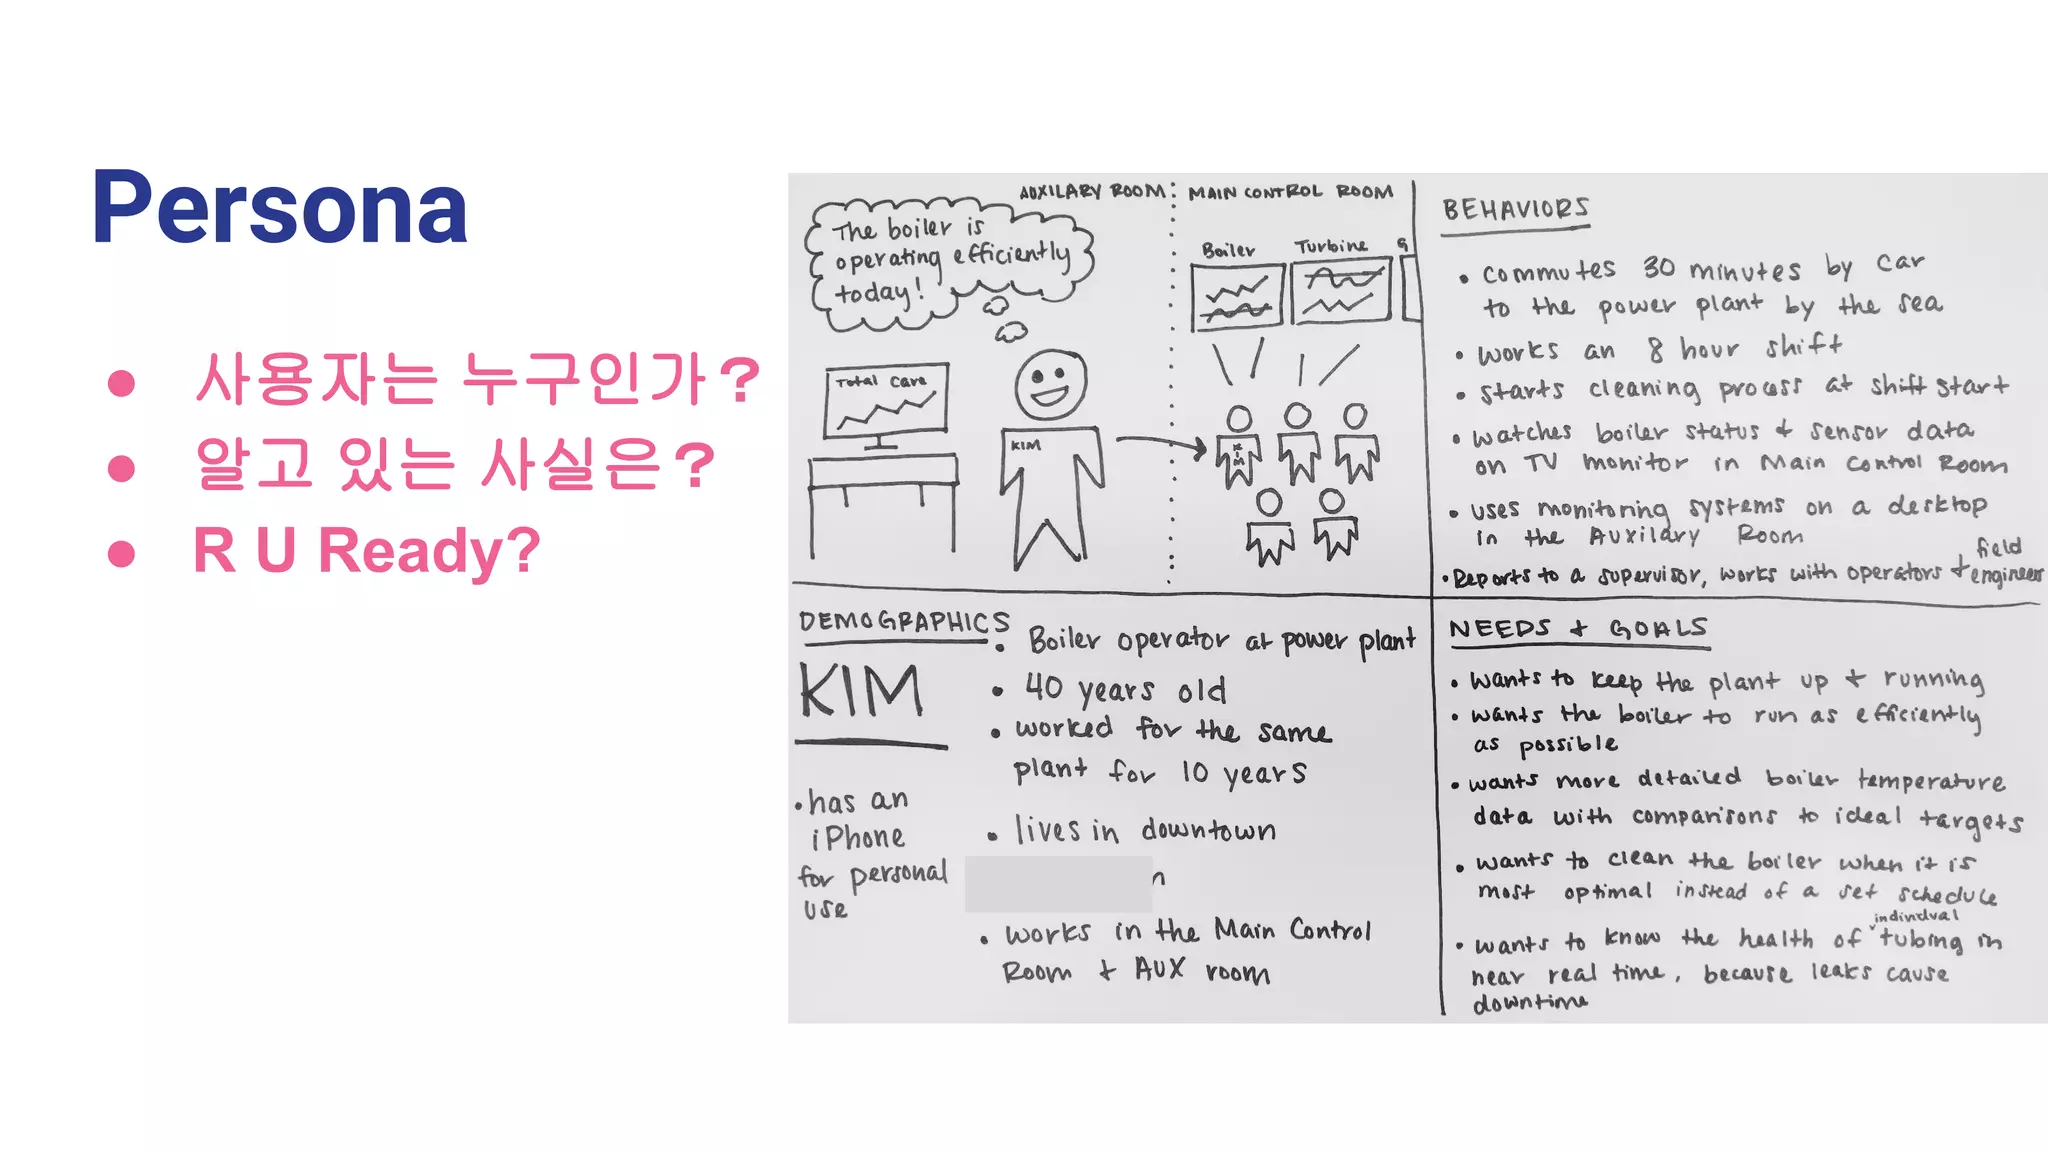 Persona
● 사용자는 누구인가?
● 알고 있는 사실은?
● R U Ready?
AUXILARY ROOM
MAIN CONTROL ROOM
The boiler is
operating efficiently
today!
Total Care
KIM
Boiler
Turbine
G
KIM
BEHAVIORS
• commutes 30 minutes by car
to the power plant by the sea
• works an 8 hour shift
• starts cleaning process at shift start
• watches boiler status + sensor data
on TV monitor in Main Control Room
• uses monitoring systems on a desktop
in the Auxilary Room
• Reports to a supervisor, works with operators + field
engineers
DEMOGRAPHICS
KIM
• has an
iPhone
for personal
use
• Boiler operator at power plant
• 40 years old
• worked for the same
plant for 10 years
• lives in downtown
n
• works in the Main Control
Room + AUX room
NEEDS + GOALS
• wants to keep the plant up + running
• wants the boiler to run as efficiently
as possible
• wants more detailed boiler temperature
data with comparisons to ideal targets
• wants to clean the boiler when it is
most optimal instead of a set schedule
• wants to know the health of individual tubing in
near real time, because leaks cause
downtime